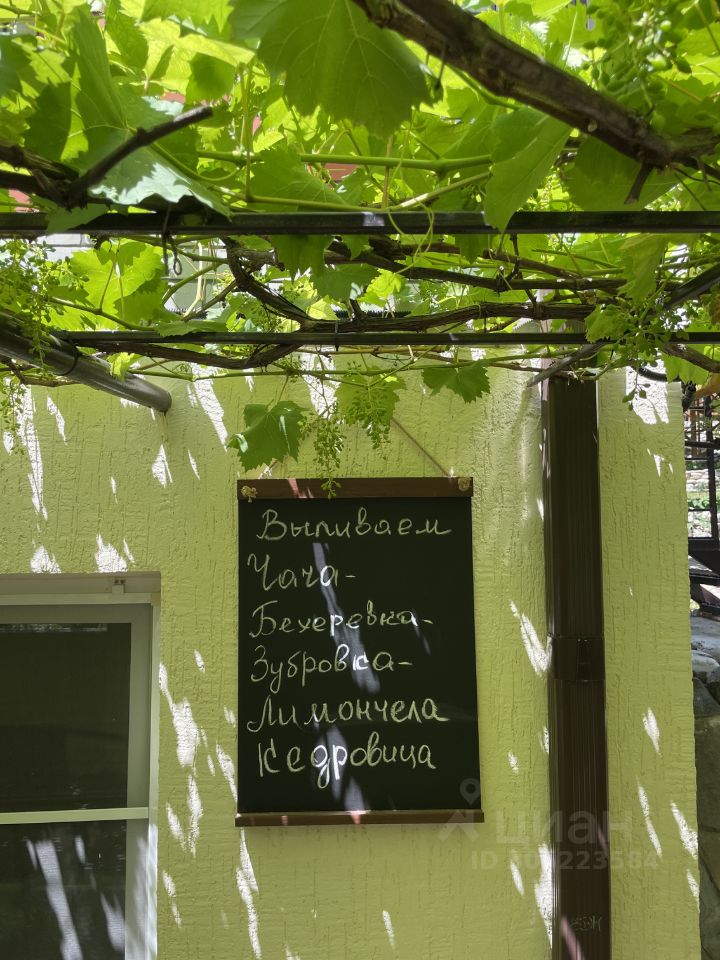 Выпиваем
Чача-
Бехеревка-
Зубровка-
Лимончела
Кедровица
циан